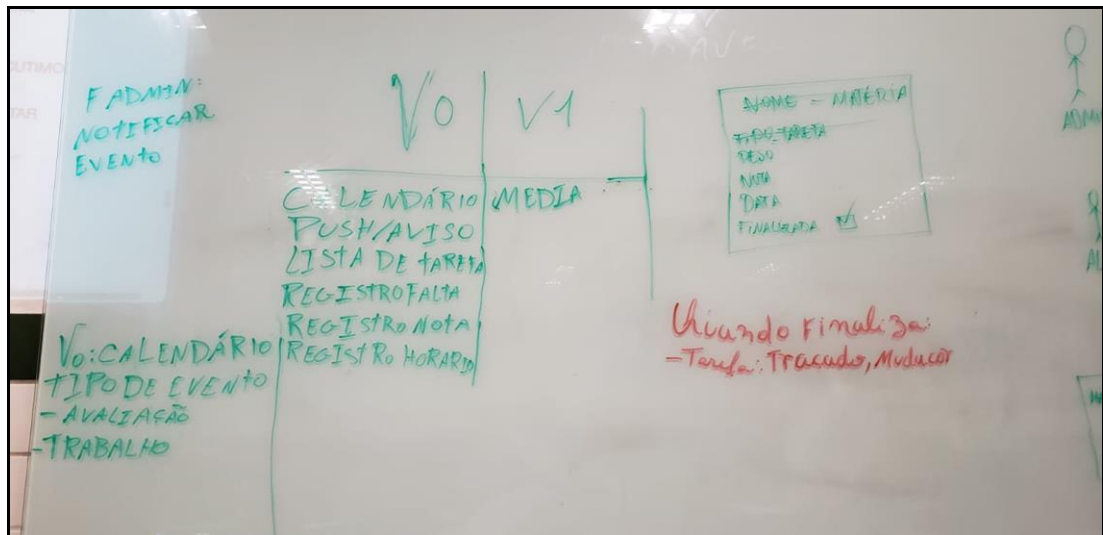 F ADMIN:
NOTIFICAR
EVENTO
V0
V1
CALENDÁRIO
PUSH/AVISO
LISTA DE TAREFA
REGISTRO FALTA
REGISTRO NOTA
REGISTRO HORARIO
MEDIA
V0: CALENDÁRIO
TIPO DE EVENTO
- AVALIAÇÃO
- TRABALHO
NOME - MATÉRIA
TIPO-TAREFA
PESO
NOTA
DATA
FINALIZADA
Finaliza:
- Tarefa:
ADMI
AL